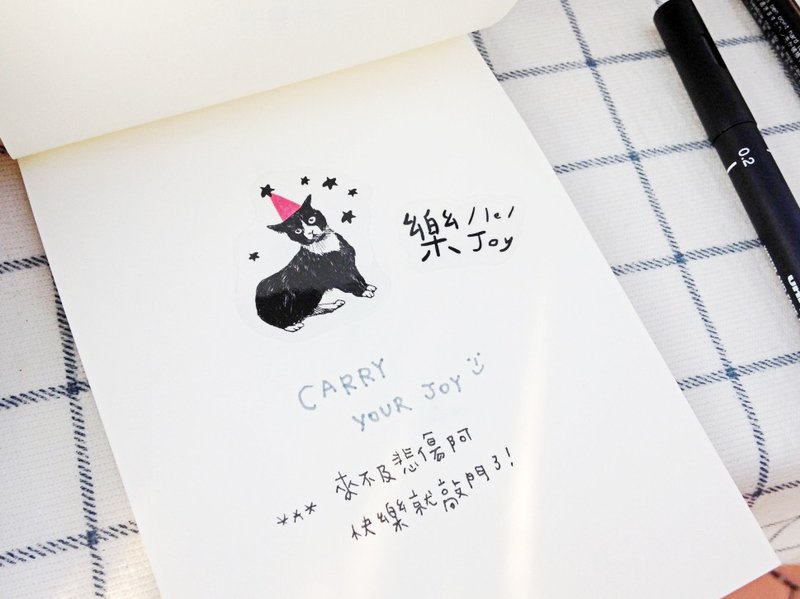 樂 /le/
Joy
CARRY
YOUR JOY
來不及悲傷阿
快樂就敲門了!
0.2
uni